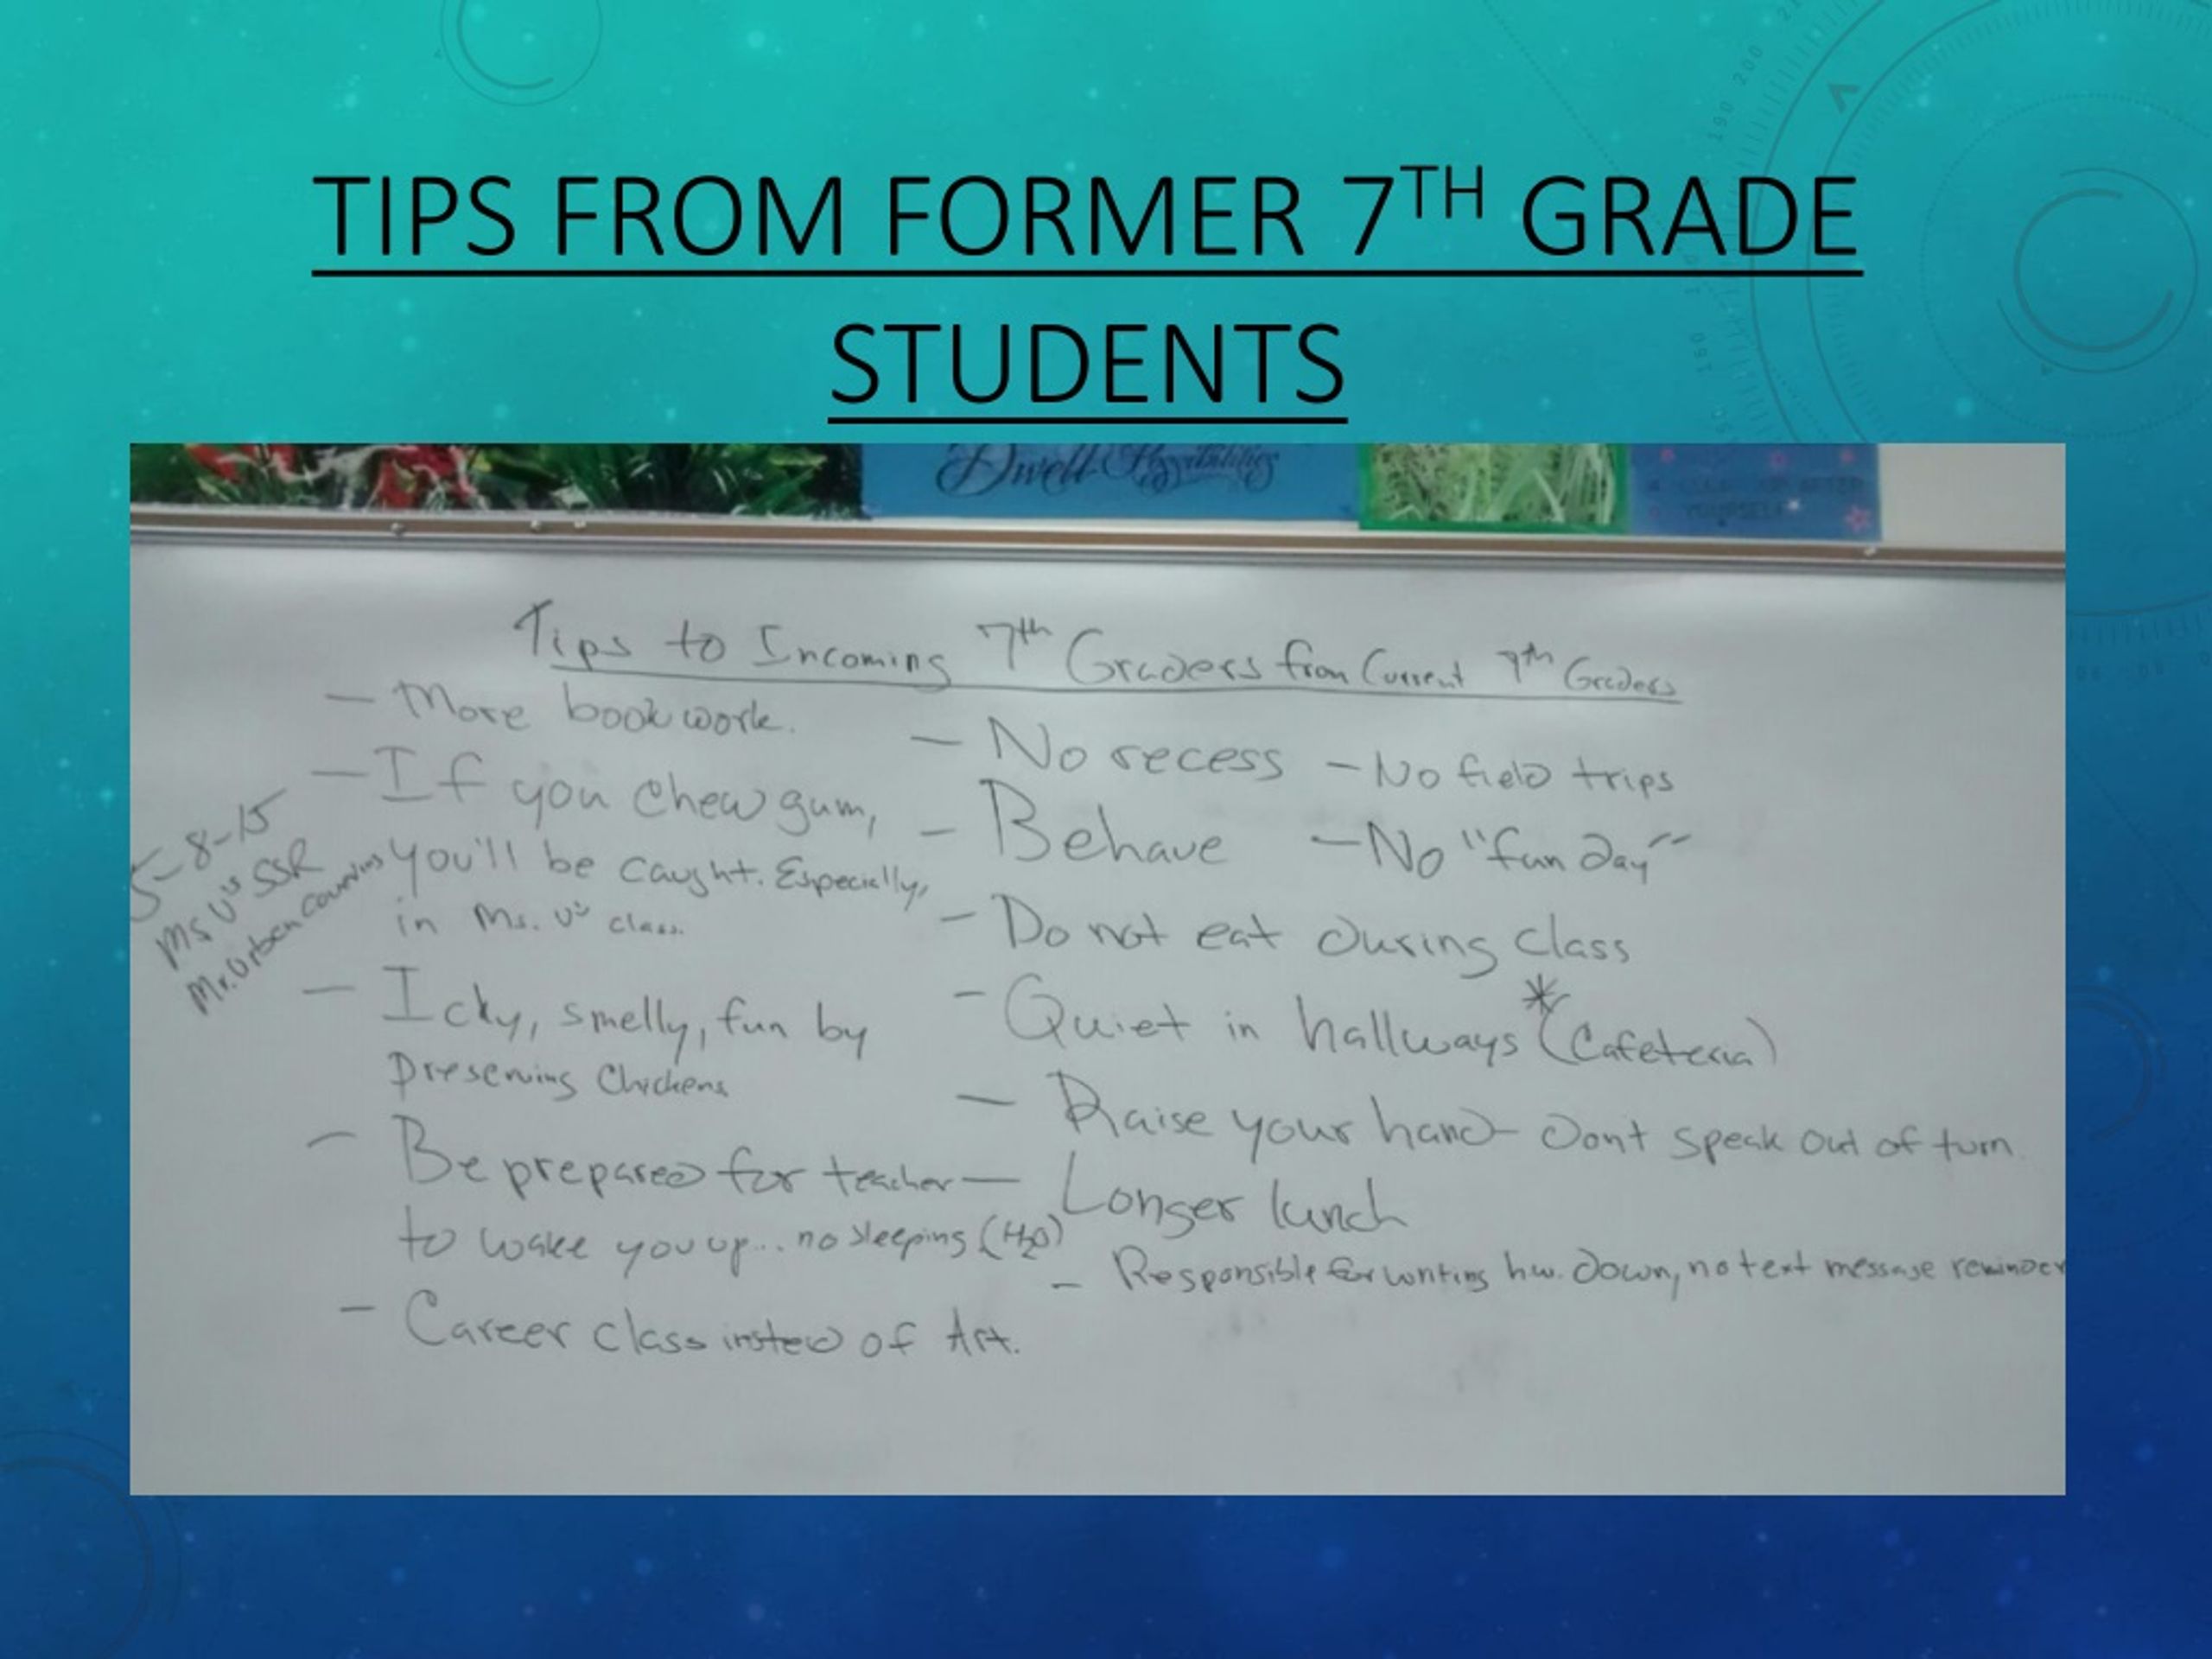 TIPS FROM FORMER 7TH GRADE
STUDENTS
Dwell Possibilities
Tips to Incoming 7th Graders from Current 7th Graders
- More bookwork.
- If you chew gum,
you'll be caught. Especially,
in Ms. U's class.
- Icky, smelly, fun by
preserving Chickens
- Be prepared for teacher
to wake you up... no sleeping (H2O)
- Career class instead of Art.
- No recess - No field trips
- Behave - No "fun day"
- Do not eat during class
- Quiet in hallways * (Cafeteria)
- Raise your hand - Dont speak out of turn
- Longer lunch
- Responsible for writing hw. down, no text message reminder
5-8-15
Ms U's SSR
Mr. Urben